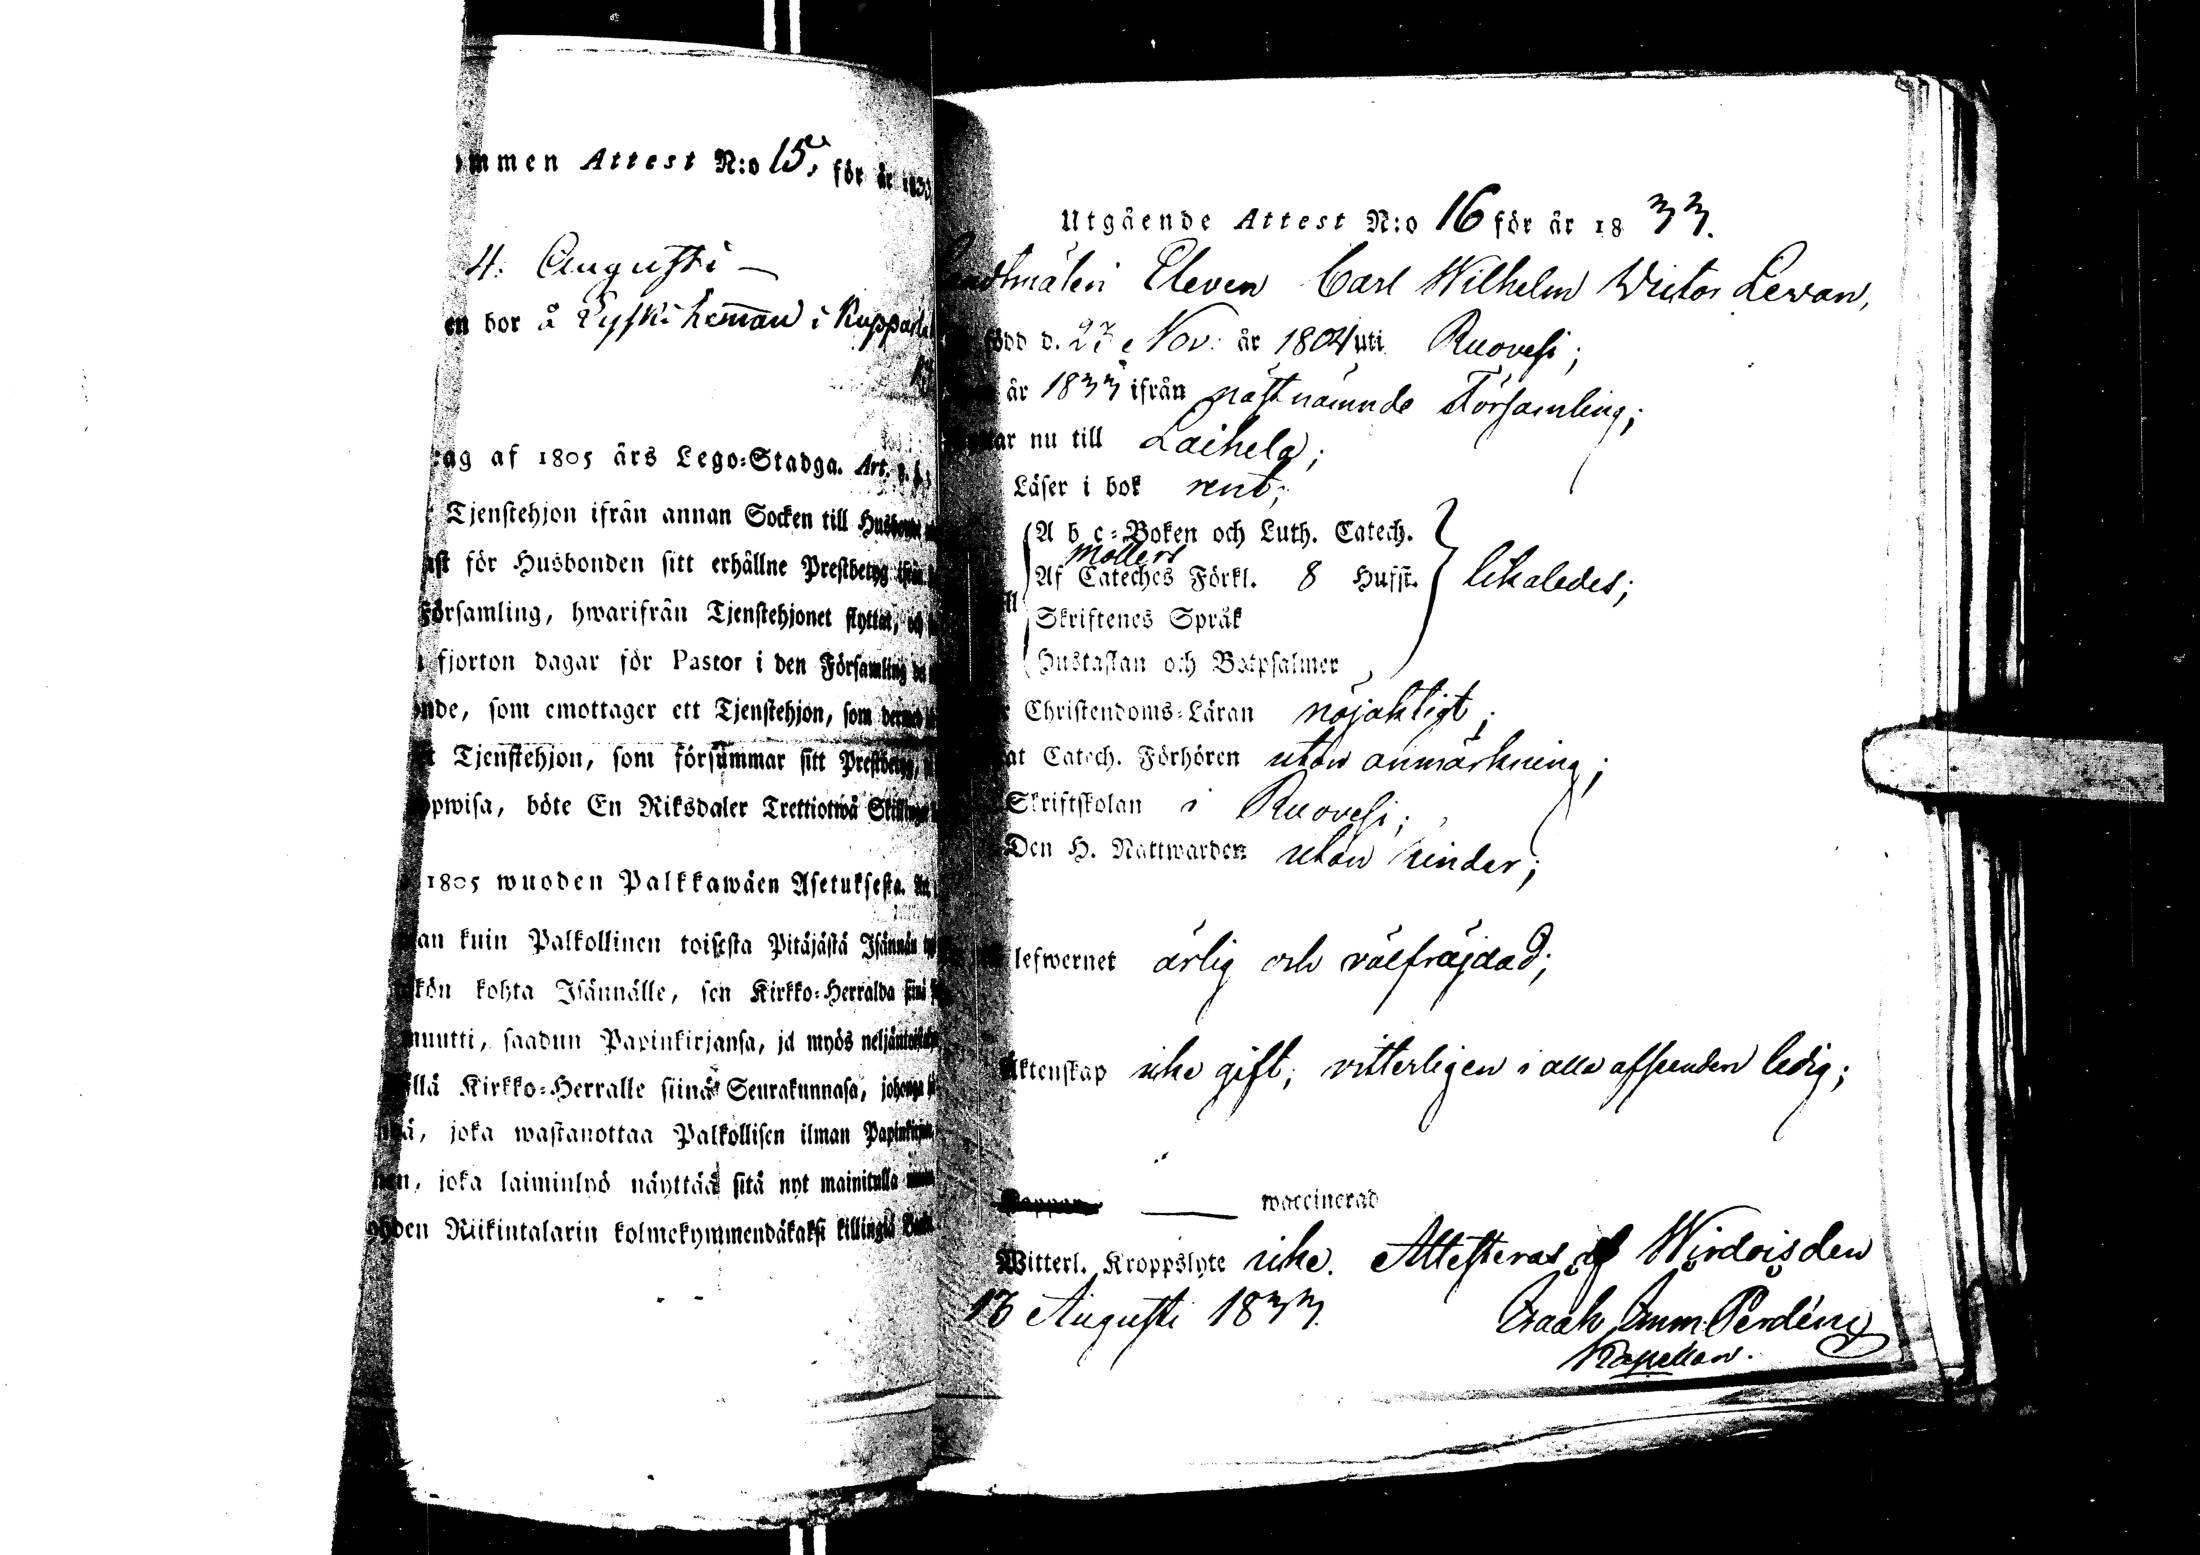 mmen Attest N:o 15, för år 1833
4. Augusti
en bor å Lyski hemman i Ruppas
ag af 1805 års Lego=Stadga. Art.
Tjenstehjon ifrån annan Socken till
för Husbonden sitt erhållne Prestbetyg
Församling, hwarifrån Tjenstehjonet flyttat, och
fjorton dagar för Pastor i den Församling
nde, som emottager ett Tjenstehjon, som
Tjenstehjon, som försummar sitt
pwisa, böte En Riksdaler Trettiotwå
1805 wuoden Palkkawäen Asetuksesta.
an kuin Palkollinen toisesta Pitäjästä Isännän
kön kohta Isännälle, sen Kirkko=Herralda
muutti, saadun Papinkirjansa, ja myös
llä Kirkko=Herralle siinä Seurakunnasa,
ä, joka wastanottaa Palkollisen ilman
n, joka laiminlyö näyttää sitä nyt mainitulla
hden Riikintalarin kolmekymmendäkaksi killingiä
Utgående Attest N:o 16 för år 1833.
Landtmäteri Eleven Carl Wilhelm Victor Lewan,
född d. 27 Nov. år 1804 uti Ruovesi;
år 1833 ifrån nästnämnde Församling;
ar nu till Laihela;
Läser i bok rent;
A b c=Boken och Luth. Catech.
Möllers
Af Cateches Förkl. 8 Hufst. likaledes;
Skriftenes Språk
Hustaflan och Botpsalmer
Christendoms=Läran nöjaktigt;
at Catech. Förhören utan anmärkning;
Skriftskolan i Ruovesi;
Den H. Nattwarden utan hinder;
lefwernet ärlig och välfräjdad;
Äktenskap icke gift, vitterligen i alla afseenden ledig;
waccinerad
Witterl. Kroppslyte icke. Attesteras af Wirdois den
13 Augusti 1833. Isaak Imm. Perdén
Kapellan.